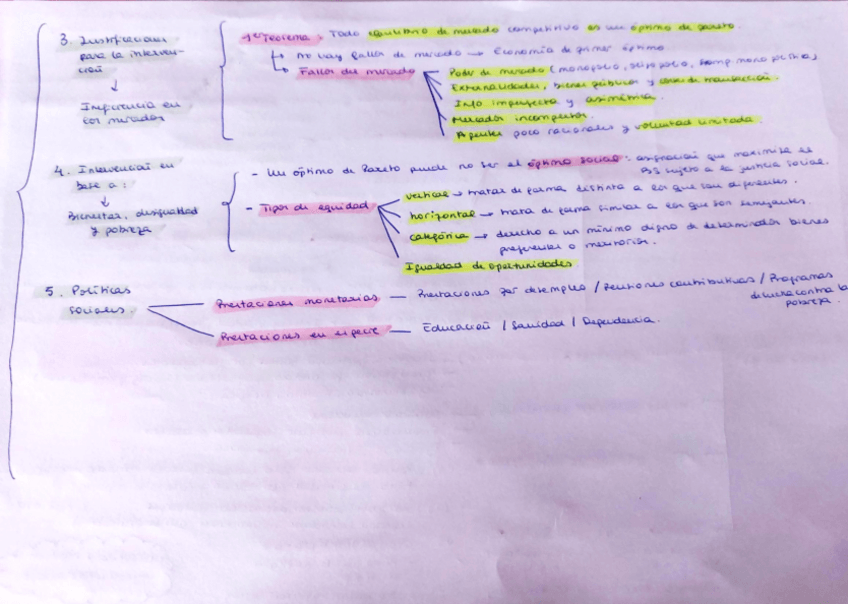 3. Justificación
para la interven-
ción
↓
Imperfección en
los mercados
1er Teorema: Todo equilibrio de mercado competitivo es un óptimo de pareto.
No hay fallos de mercado → Economía de primer óptimo
Fallos del mercado
Poder de mercado (monopolio, oligopolio, comp. monopolística)
Externalidades, bienes públicos y costes de transacción.
Info imperfecta y asimétrica.
Mercados incompletos.
Agentes poco racionales y voluntad limitada.
4. Intervención en
base a:
↓
Bienestar, desigualdad
y pobreza
- Un óptimo de Pareto puede no ser el óptimo social: asignación que maximiza el
BS sujeto a la justicia social.
- Tipos de equidad
vertical → tratar de forma distinta a los que son diferentes.
horizontal → trata de forma similar a los que son semejantes.
categórica → derecho a un mínimo digno de determinados bienes
preferentes o meritorios.
Igualdad de oportunidades
5. Políticas
sociales.
Prestaciones monetarias — Prestaciones por desempleo / Pensiones contributivas / Programas
de lucha contra la
pobreza.
Prestaciones en especie — Educación / Sanidad / Dependencia.